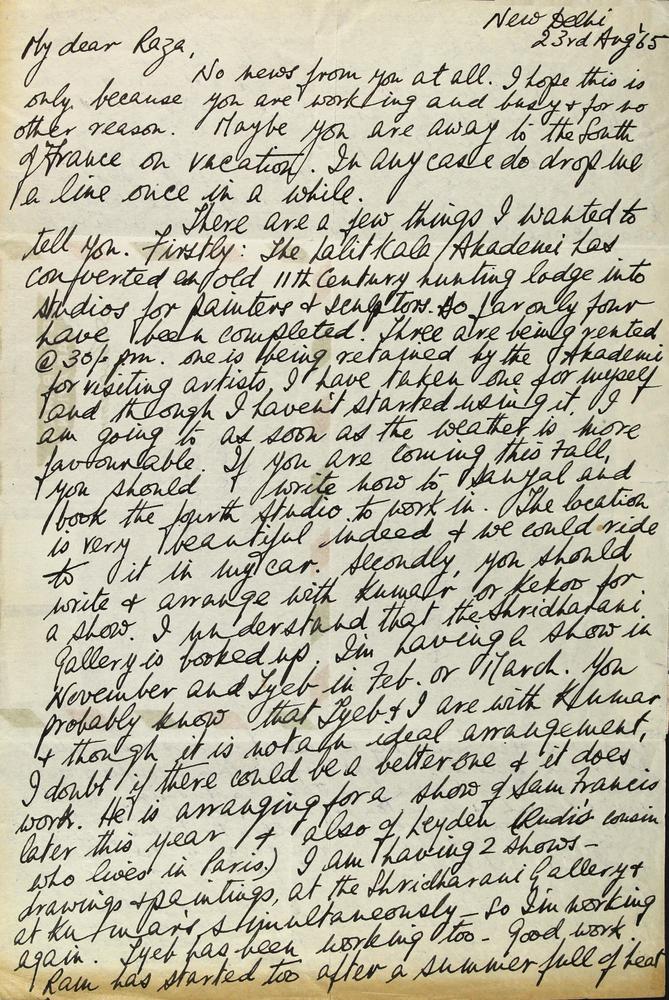 New Delhi
23rd Aug '65
My dear Raza,
No news from you at all. I hope this is
only because you are working and busy & for no
other reason. Maybe you are away to the South
of France on vacation. In any case do drop me
a line once in a while.
There are a few things I wanted to
tell you. Firstly: The Lalit Kala Akademi has
converted an old 11th Century hunting lodge into
studios for painters & sculptors. So far only four
have been completed. Three are being rented
@ 30/- pm. one is being retained by the Akademi
for visiting artists. I have taken one for myself
and though I haven't started using it, I
am going to as soon as the weather is more
favourable. If you are coming this Fall,
you should write now to Sanyal and
book the fourth studio to work in. The location
is very beautiful indeed & we could ride
to it in my car. Secondly, you should
write & arrange with Kumar or Kekoo for
a show. I understand that the Shridharani
Gallery is booked up. I'm having a show in
November and Tyeb in Feb. or March. You
probably know that Tyeb & I are with Kumar
& though it is not an ideal arrangement,
I doubt if there could be a better one & it does
work. He is arranging for a show of Sam Francis
later this year & also of Leyden (Rudi's cousin
who lives in Paris.) I am having 2 shows -
drawings & paintings, at the Shridharani Gallery &
at Kumar's simultaneously - So I'm working
again. Tyeb has been working too - Good work
Ram has started too after a summer full of heat